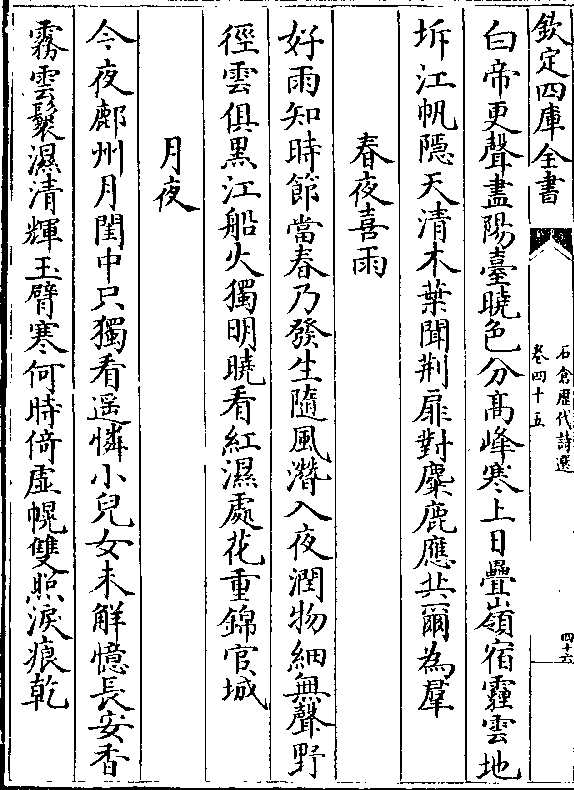 欽定四庫全書
石倉歷代詩選
卷四十五
四十六
白帝更聲盡陽臺曉色分髙峰寒上日疊嶺宿霾雲地
坼江帆隱天清木葉聞荆扉對麋鹿應共爾為羣
春夜喜雨
好雨知時節當春乃發生隨風潛入夜潤物細無聲野
徑雲俱黒江船火獨明曉看紅濕處花重錦官城
月夜
今夜鄜州月閨中只獨看遥憐小兒女未解憶長安香
霧雲鬟濕清輝玉臂寒何時倚虚幌雙照淚痕乾